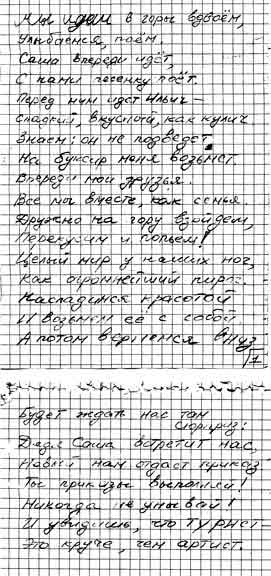 Мы идём в горы вдвоём,
Улыбаемся, поём.
Саша впереди идёт,
С нами песенку поёт.
Перед ним идет Ильич —
сладкий, вкусный, как кулич
Знаем: он не подведёт
На буксир меня возьмет.
Впереди мои друзья.
Все мы вместе, как семья.
Дружно на гору взойдем,
Перекусим и попьем!
Целый мир у наших ног,
Как огромнейший пирог.
Насладимся красотой
И возьмем её с собой
А потом вернемся вниз
1
Будет ждать нас там
сюрприз:
Дядя Саша встретит нас,
Новый нам отдаст приказ
Ты приказы выполняй!
Никогда не унывай!
И увидишь, что турист —
Это круче, чем артист.